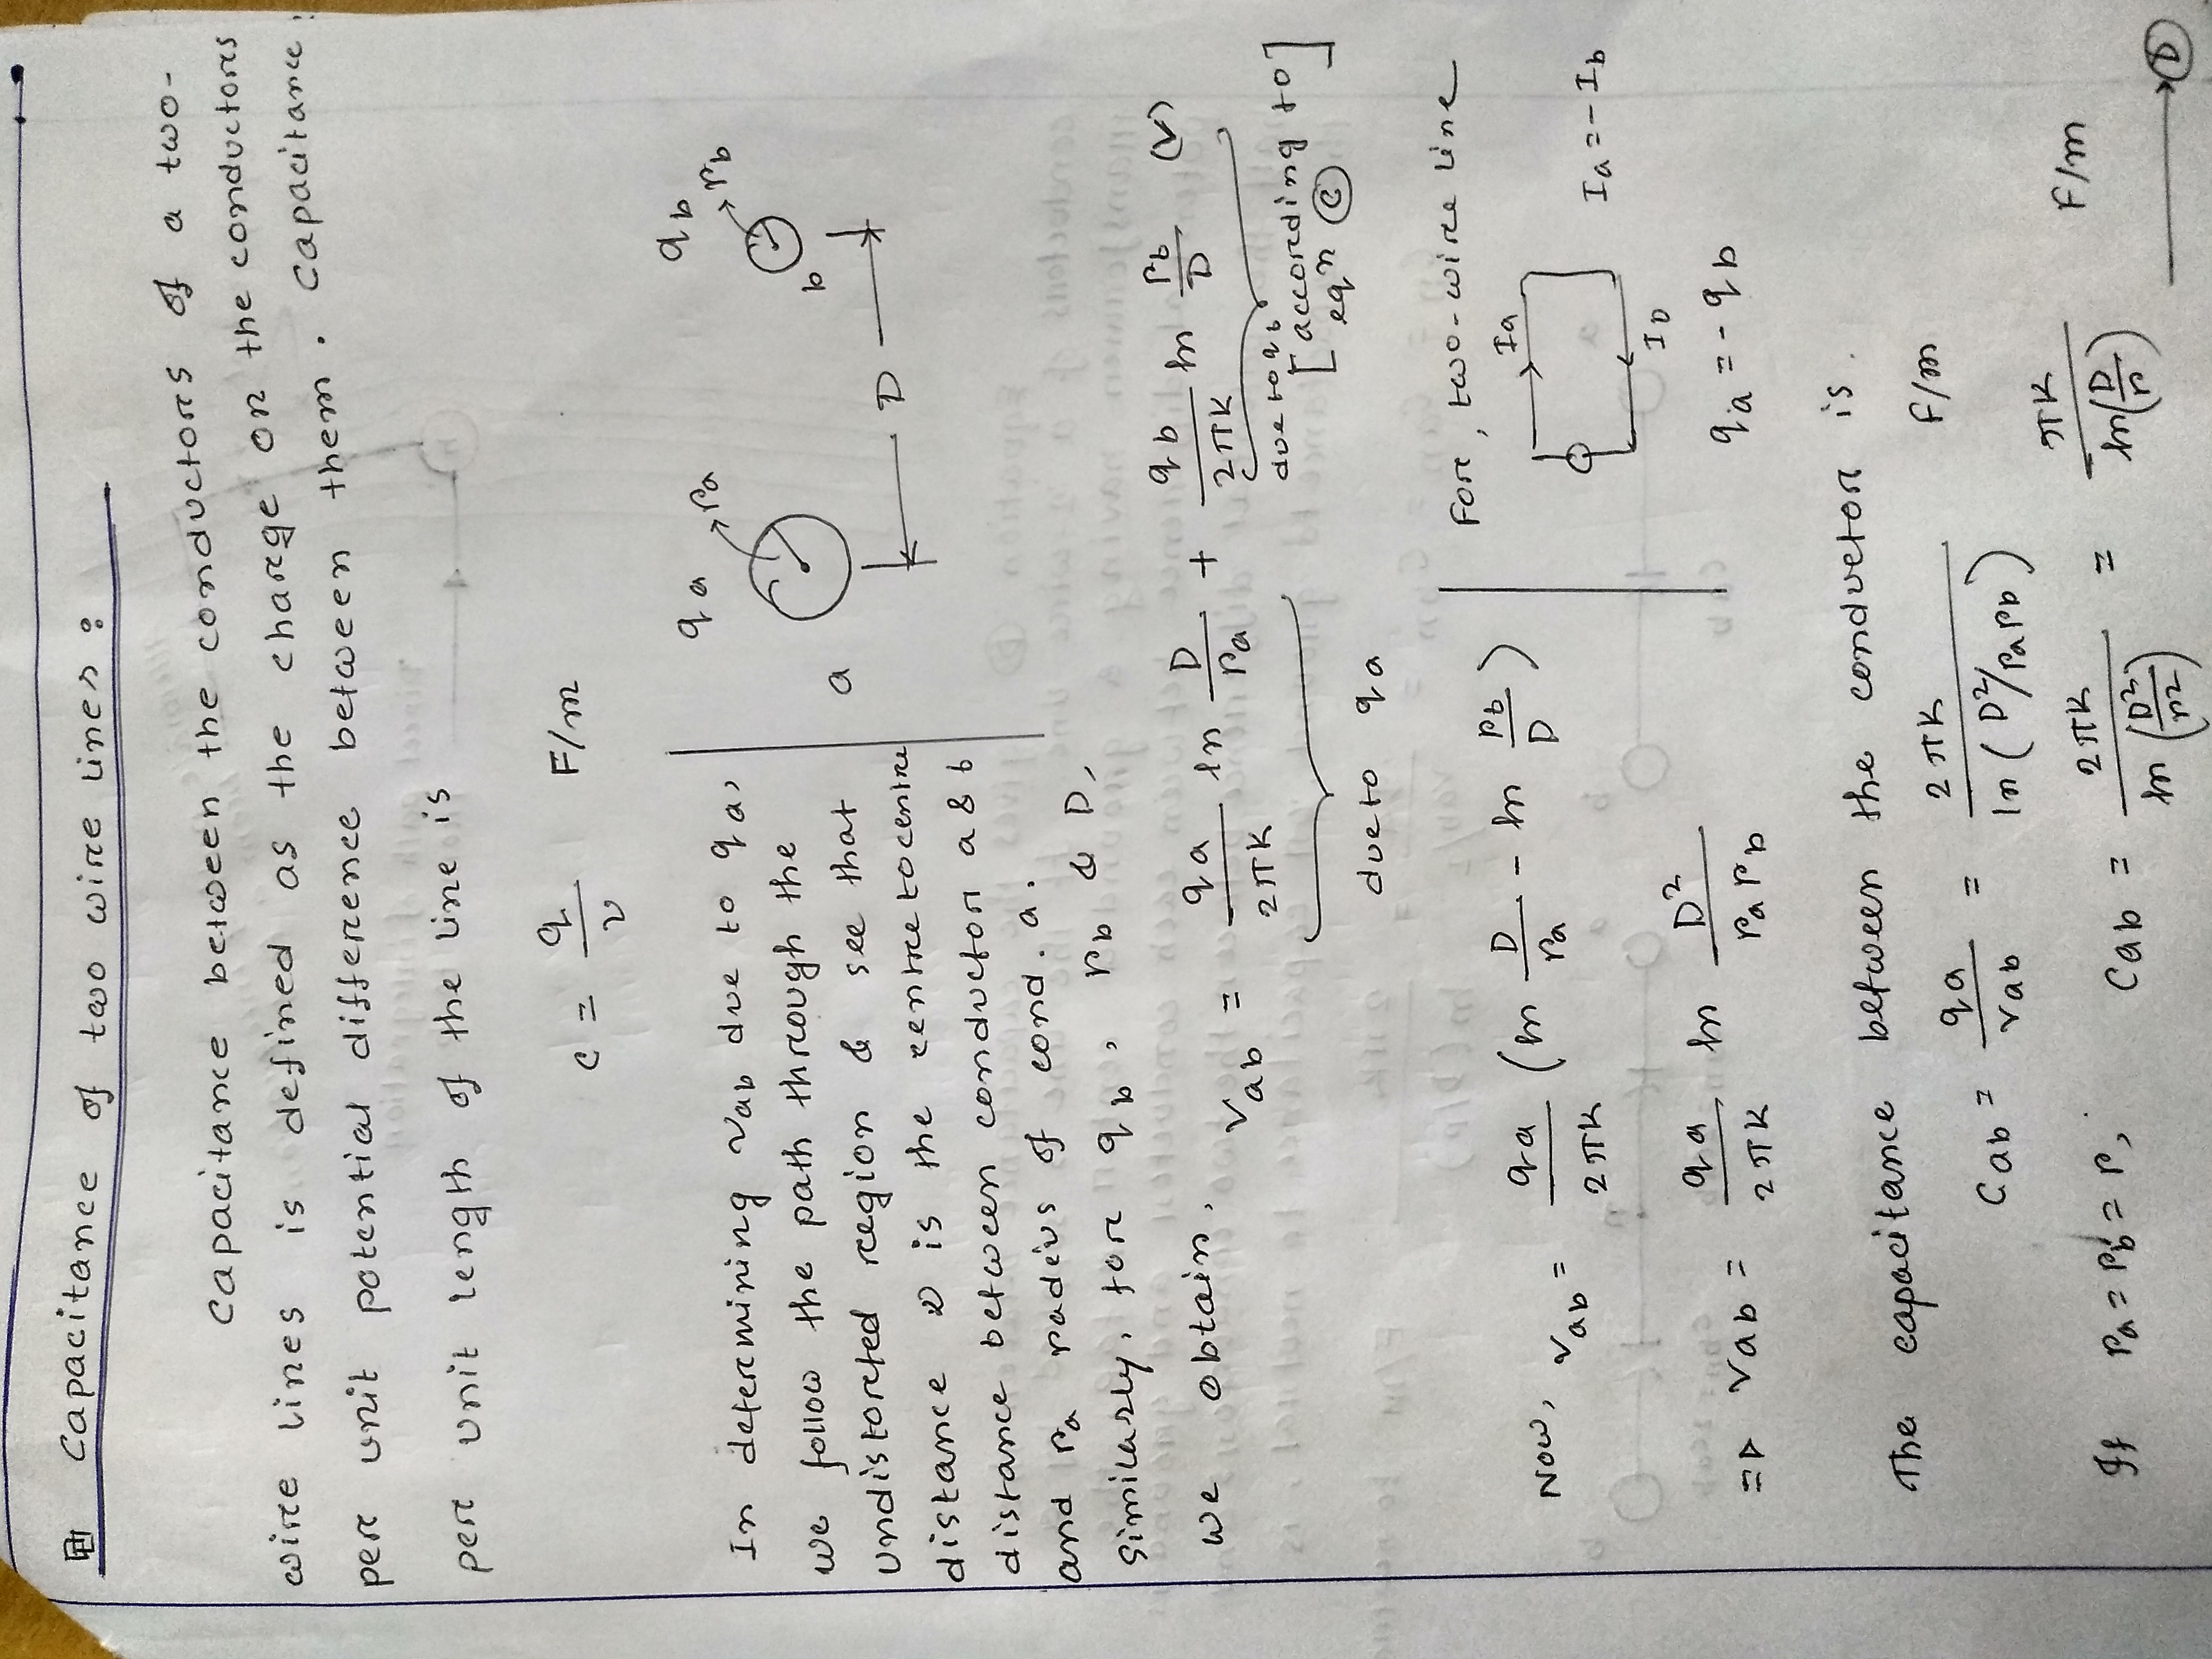 Capacitance of two wire lines :
Capacitance between the conductors of a two-
wire lines is defined as the charge on the conductors
per unit potential difference between them. Capacitance
per unit length of the line is
C = q/v F/m
In determining Vab due to qa,
we follow the path through the
undistorted region & see that
distance D is the centre to centre
distance between conductor a & b
and ra radius of cond. a.
Similarly, for qb, rb & D,
we obtain,
qa
ra
a
qb
rb
b
D
Vab = qa/2πK ln D/ra + qb/2πK ln rb/D (V)
due to qa
due to qb
[according to
eqn C]
Now, Vab = qa/2πK (ln D/ra - ln rb/D)
=> Vab = qa/2πK ln D²/ra rb
For, two-wire line
Ia
Ib
Ia = -Ib
qa = -qb
The capacitance between the conductor is.
Cab = qa/Vab = 2πK/ln(D²/ra rb) F/m
If ra = rb = r, Cab = 2πK/ln(D²/r²) = πK/ln(D/r) F/m
D